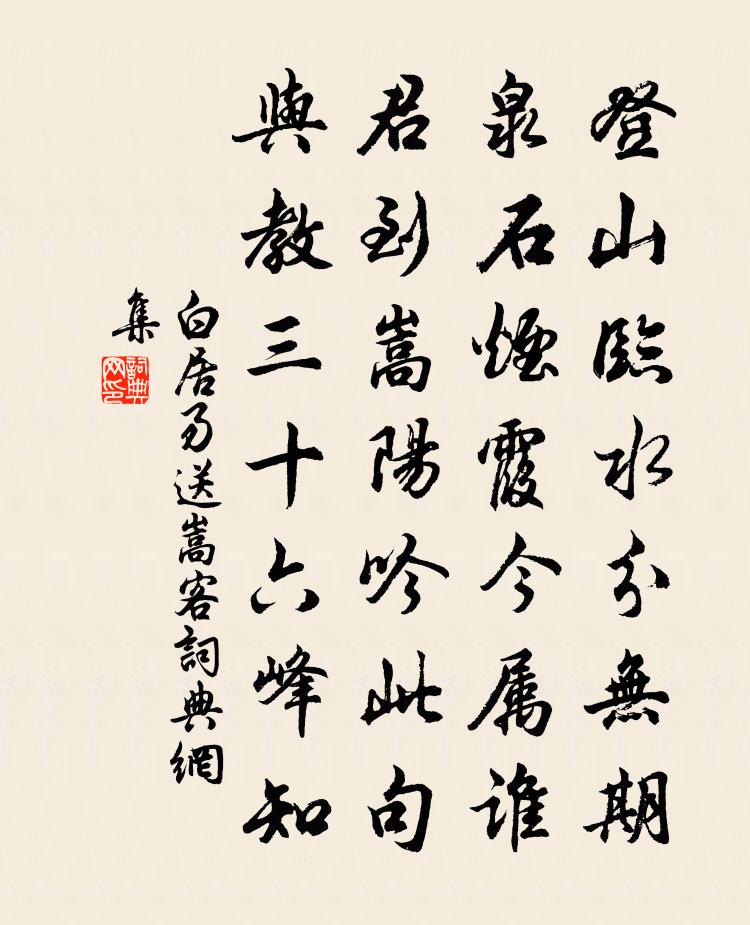 登山臨水分無期
泉石煙霞今属谁
君到嵩陽吟此句
與教三十六峰知
白居易送嵩客詞典網
集
詞典
网印